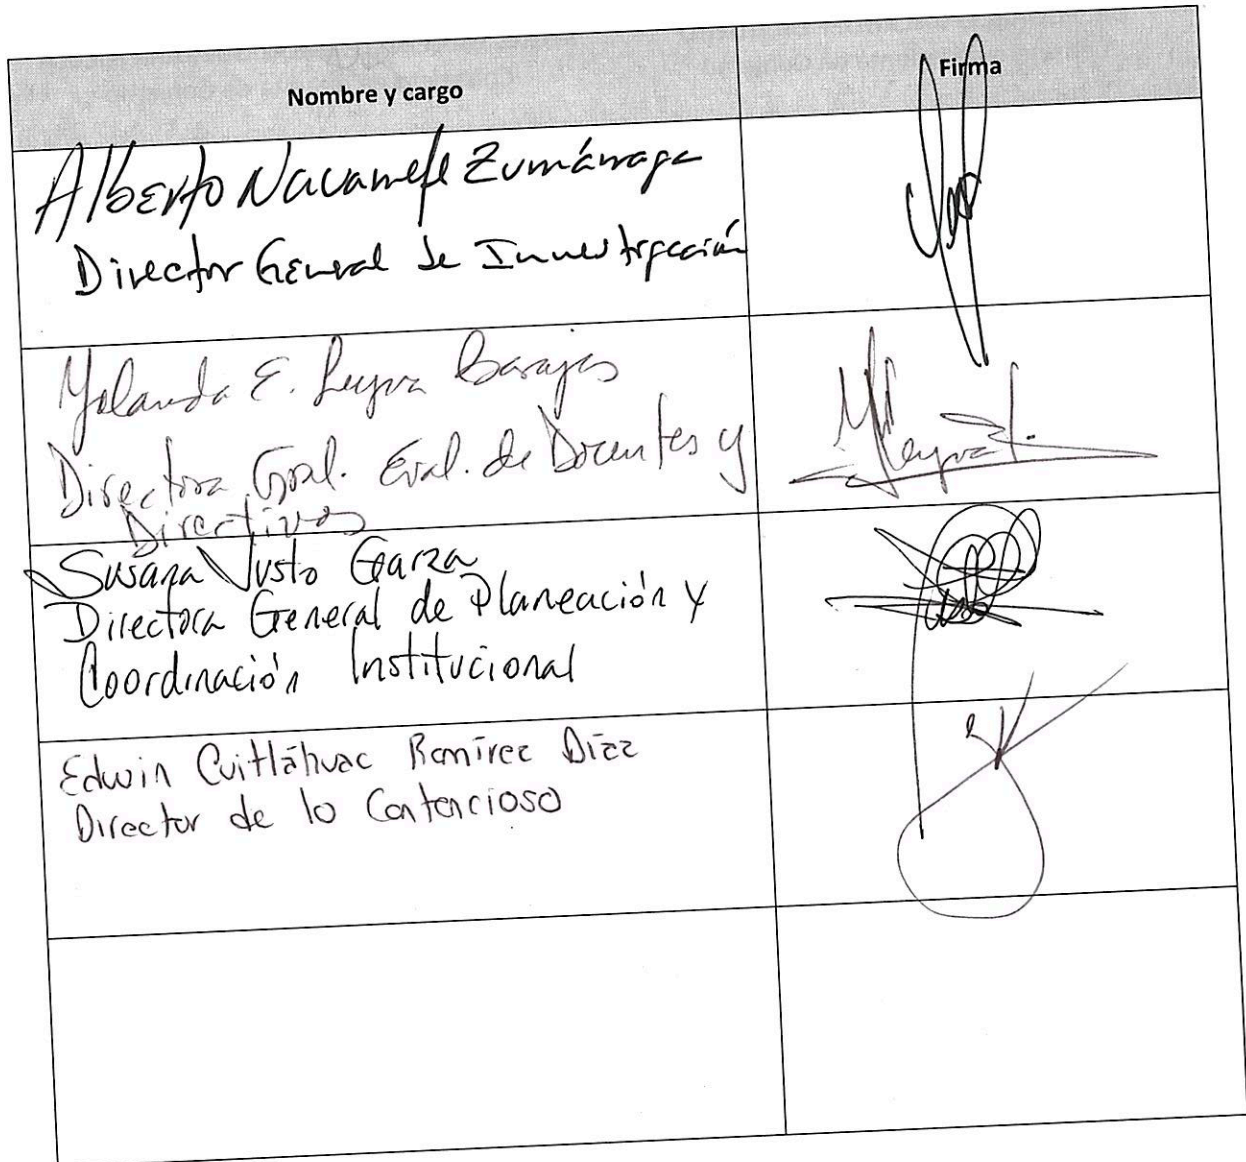 Nombre y cargo
Firma
Alberto Navarrete Zumárraga
Director General de Investigación
Yolanda E. Leyva Barajas
Directora Gral. Eval. de Docentes y
Directivos
Susana Justo Garza
Directora General de Planeación y
Coordinación Institucional
Edwin Cuitláhuac Ramírez Díaz
Director de lo Contencioso